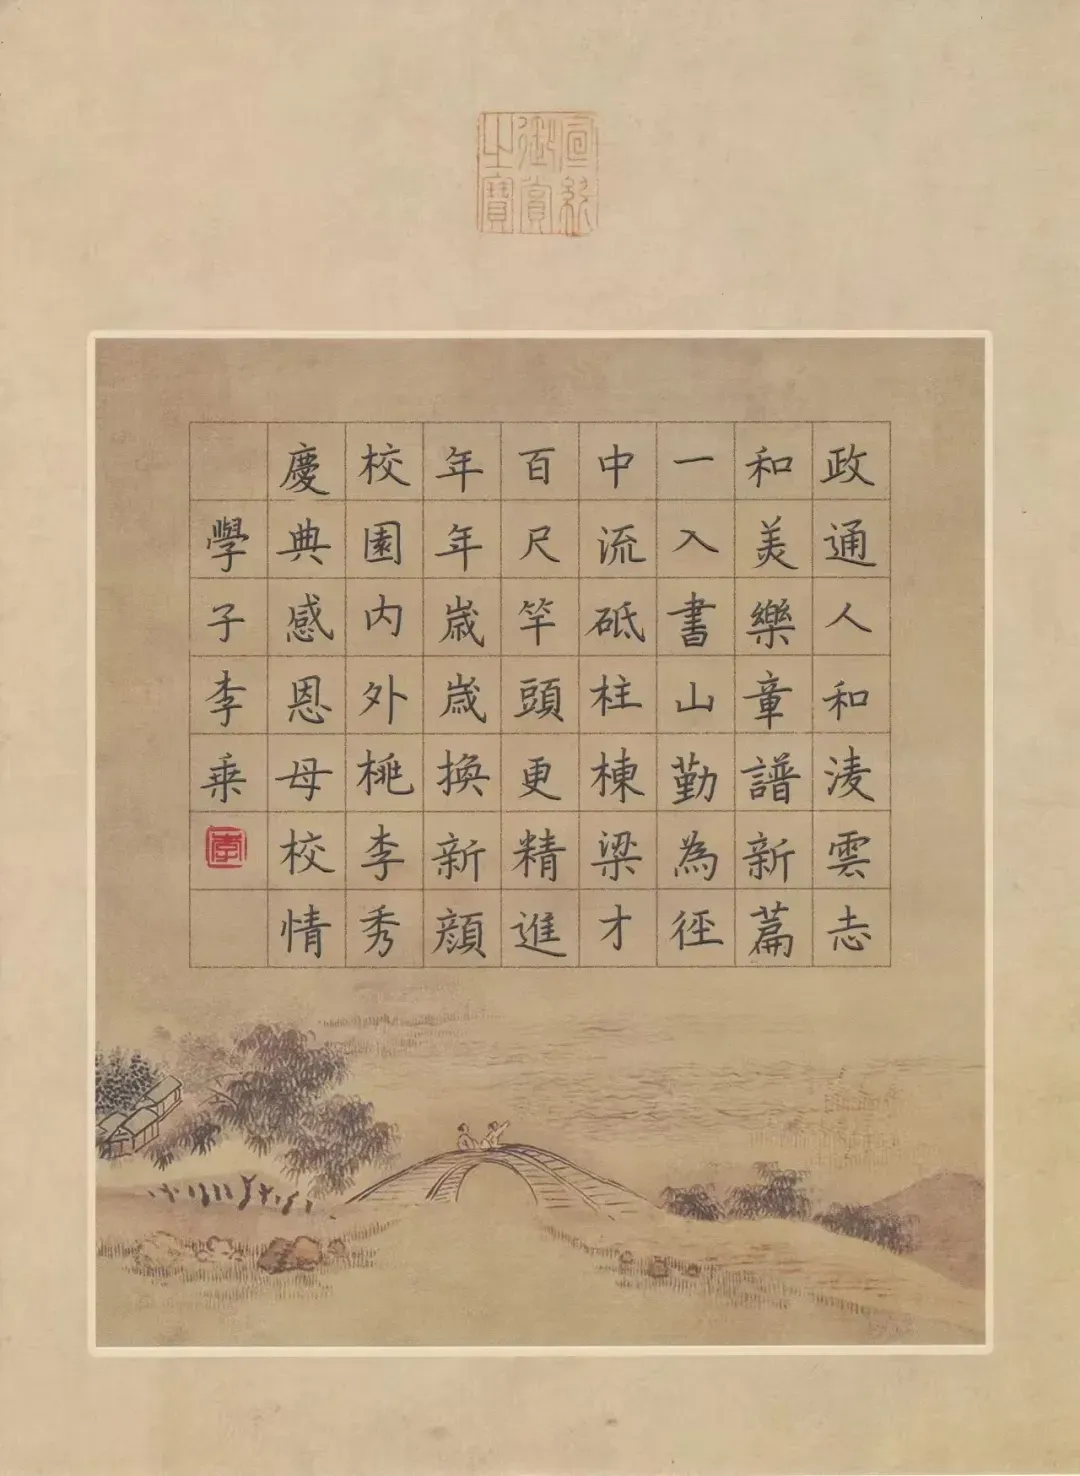 宣統御賞之寶
政通人和淩雲志
和美樂章譜新篇
一入書山勤為徑
中流砥柱棟梁才
百尺竿頭更精進
年年嵗嵗換新顔
校園内外桃李秀
慶典感恩母校情
學子李乗
李